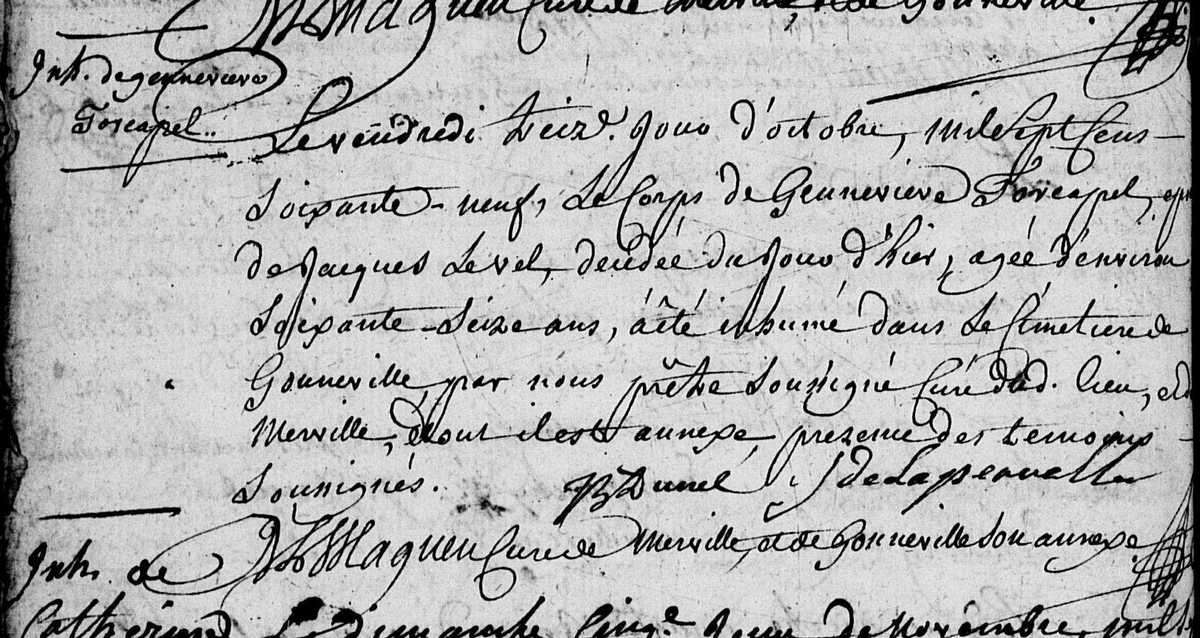 Curé de Merville, et de Gonneville.
Inh. de gennevieve
Forcapel..
Le vendredi treiz.e Jour d'octobre, mil Sept Cens-
Soixante-neuf, Le Corps de Gennevieve Forcapel, ep
de Jacques Level, décédée du Jour d'hier, agée d'environ
Soixante-Seize ans, a été inhumé dans Le Cimetiere de
Gonneville, par nous prêtre Soussigné Curé dud. lieu, et d
Merville, dont il est annexe, presence des temoins
Soussignés.
Curé de Merville, et de Gonneville Son annexe
Inh. de
Catherine Le Dimanche Cinq.e Jour de Novembre, mil